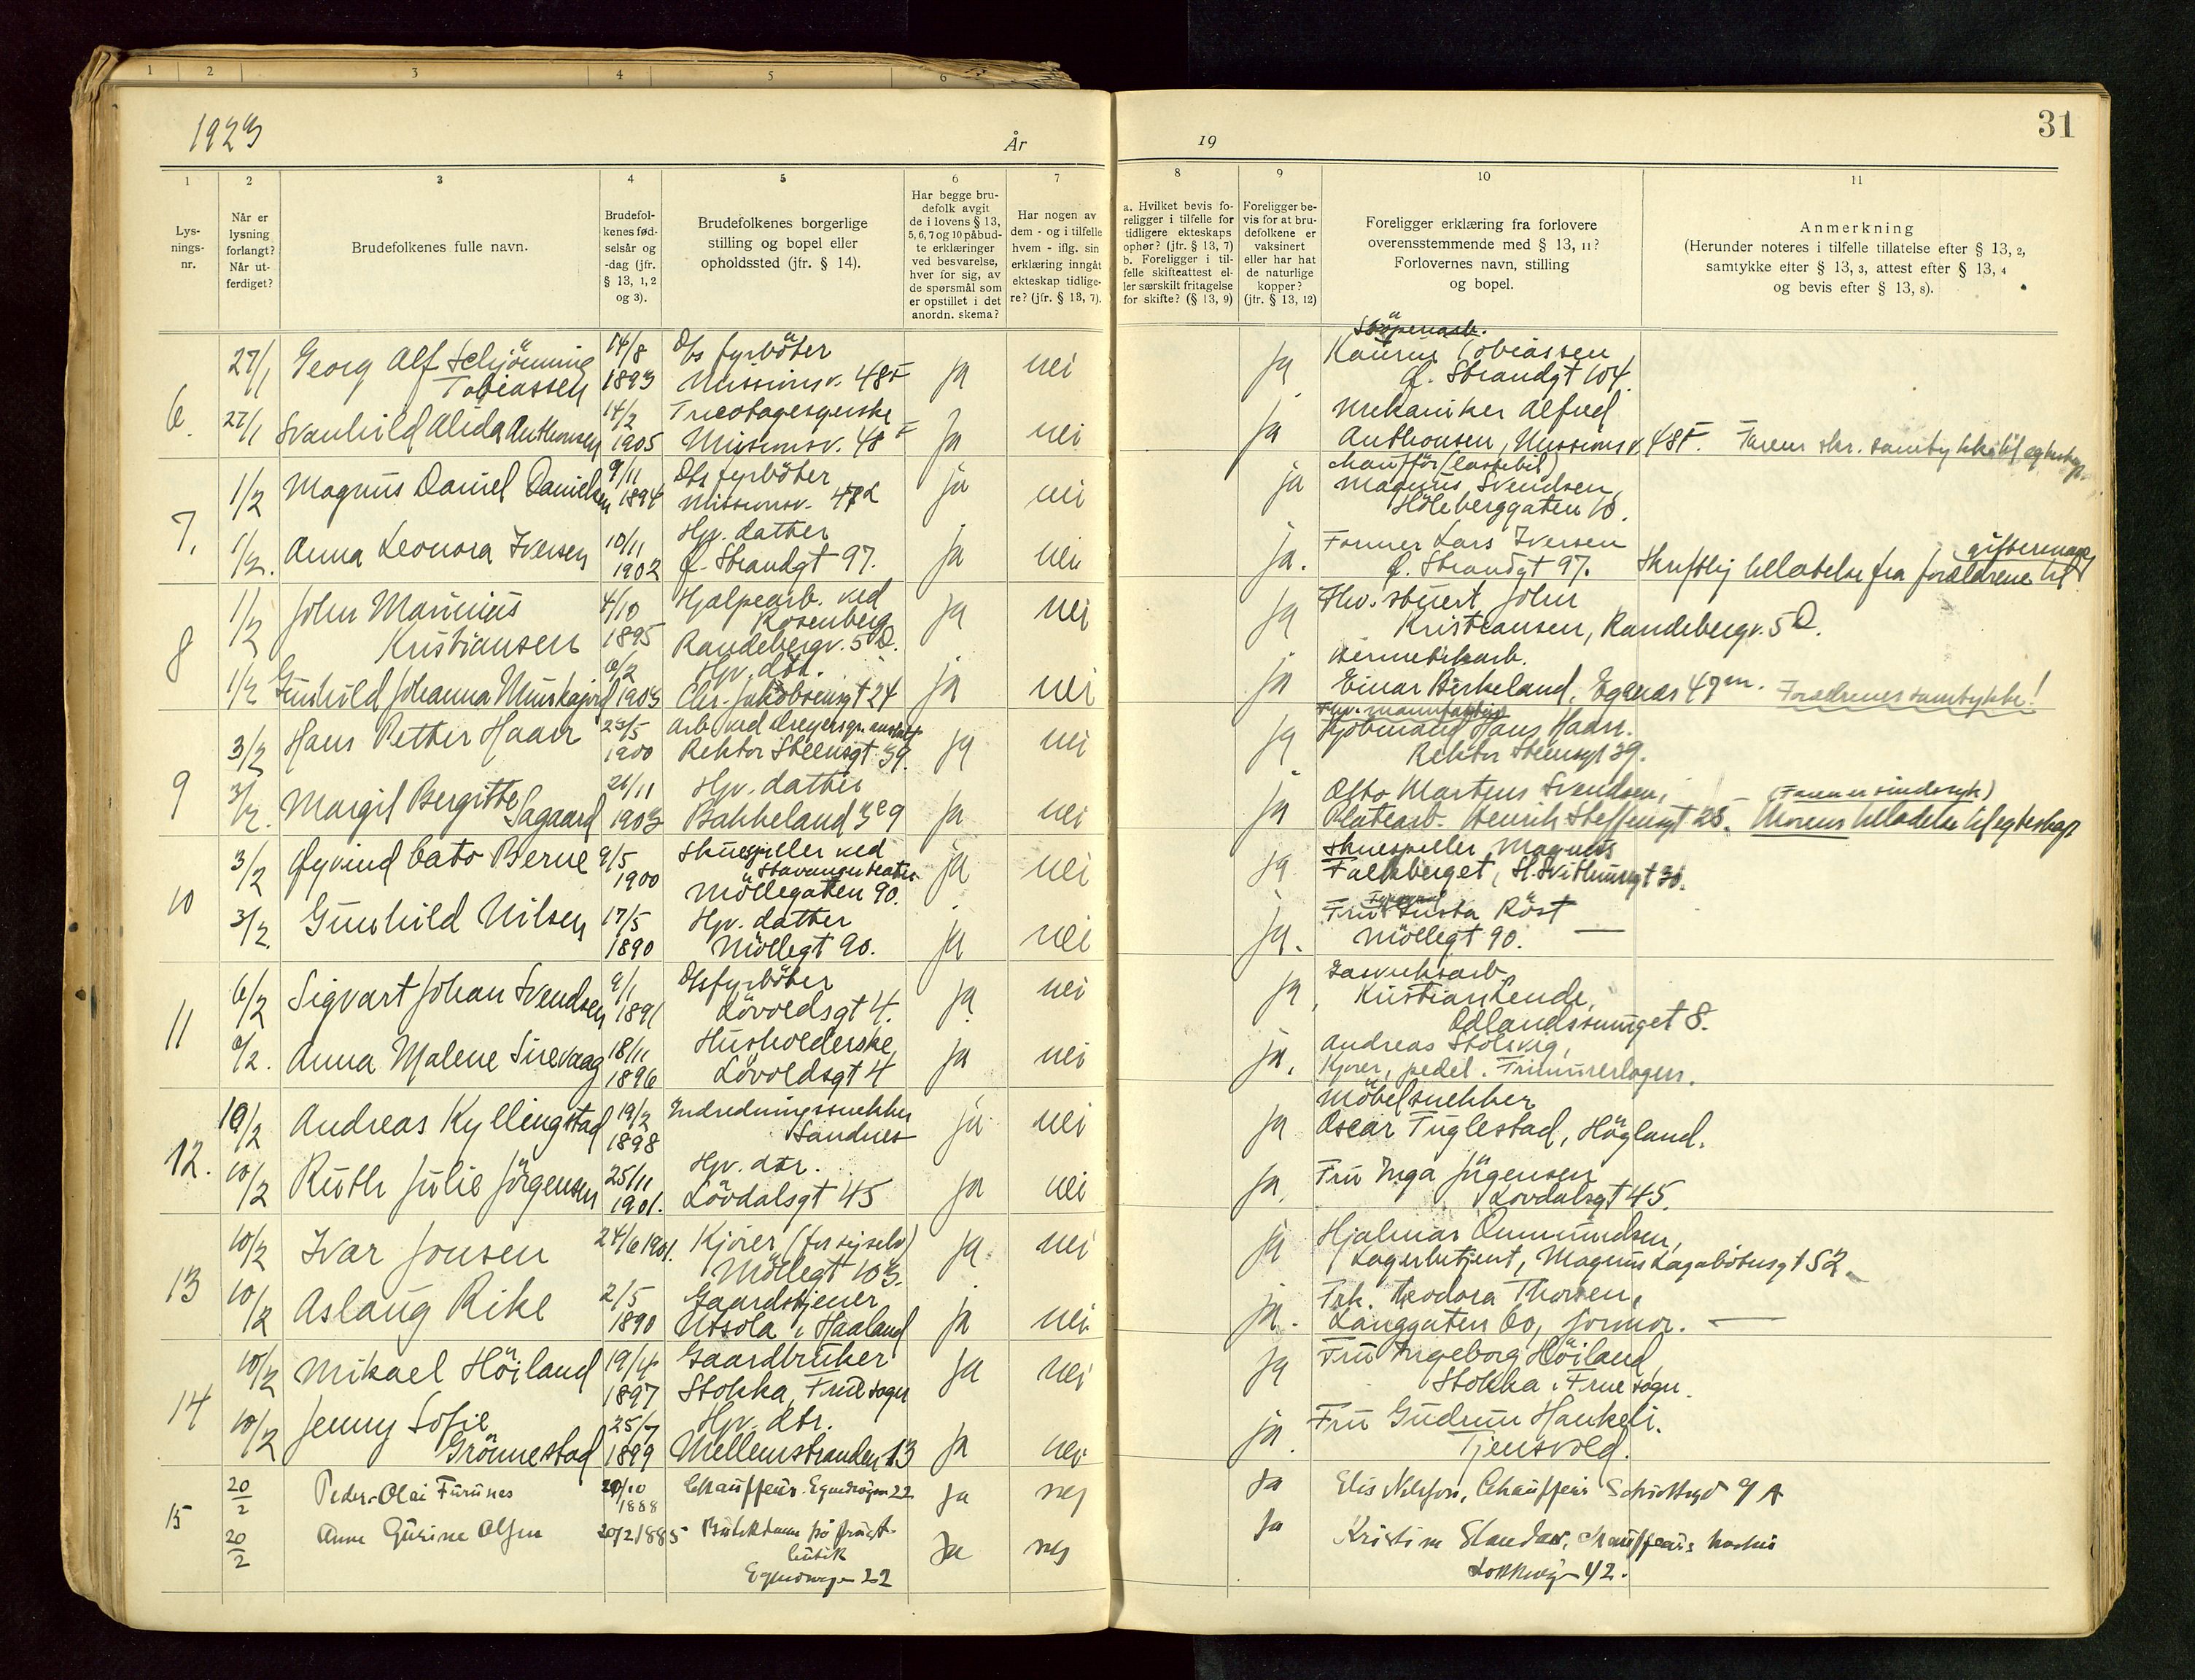 1 2 3 4 5 6
1923 År
19 31
1 2 3 4 5 6 7 8 9 10 11
Lysningsnr.
Når er lysning forlangt? Når utferdiget?
Brudefolkenes fulle navn.
Brudefolkenes fødselsår og -dag (jfr. § 13, 1, 2 og 3).
Brudefolkenes borgerlige stilling og bopel eller opholdssted (jfr. § 14).
Har begge brudefolk avgit de i lovens § 13, 5, 6, 7 og 10 påbudte erklæringer ved besvarelse, hver for sig, av de spørsmål som er opstillet i det anordn. skema?
Har nogen av dem - og i tilfelle hvem - iflg. sin erklæring inngåt ekteskap tidligere? (jfr. § 13, 7).
a. Hvilket bevis foreligger i tilfelle for tidligere ekteskaps ophør? (jfr. § 13, 7)
b. Foreligger i tilfelle skifteattest eller særskilt fritagelse for skifte? (§ 13, 9)
Foreligger bevis for at brudefolkene er vaksinert eller har hat de naturlige kopper? (jfr. § 13, 12)
Foreligger erklæring fra forlovere overensstemmende med § 13, 11? Forlovernes navn, stilling og bopel.
Anmerkning
(Herunder noteres i tilfelle tillatelse efter § 13, 2, samtykke efter § 13, 3, attest efter § 13, 4 og bevis efter § 13, 8).
6.
27/1 Georg Alf Schjönning Tobiassen 14/8 1893 Dbs fyrböter Missionsv. 48 F ja nei
ja Tobiassen
Ø. Strandgt 104.
27/1 Svanhild Alida Anthonsen 14/2 1905 Tricotagesyerske Missionsv. 48 F ja nei
ja Mekaniker Alfred
Anthonsen, Missionsv. 48 F. Farens skr. samtykke til egteskap.
7.
1/2 Magnus Daniel Danielsen 9/11 1894 Dbs fyrböter Missionsv. ja nei
ja Chauffør (lastebil)
Magnus Svendsen,
Höleberggaten 10.
1/2. Anna Leonora Iversen 10/11 1902 Hjv. datter Ø. Strandgt 97. ja nei
ja. Former Lars Iversen
Ø. Strandgt 97. Skriftlig tilladelse fra forældrene til giftermaal
8
1/2 John Marinius Kristiansen 4/10 1895 Hjælpearb. ved Rosenberg Randebergv. 5 D. ja nei
ja Fhv. stuert John
Kristiansen, Randebergv. 5 D.
1/2 Gunhild Johanna Munkejord 6/2 1903 Hjv. dtr. Chr. Jakobsensgt 24 ja nei
ja Hermetikarb.
Einar Birkeland, Egenes 47 m. Forældrenes samtykke!
9
3/2 Hans Petter Haarr 23/5 1900 Arb. ved Dreyers gr. anstalt Rektor Steensgt 39. ja nei
ja Kjöbmand Hans Haarr.
Rektor Steensgt 39.
3/2. Margit Bergitte Sagaard 21/11 1903 Hjv. datter Bakkeland ja nei
ja Otto Martens Svendsen,
Platearb. Henrik Steffensgt 25. (Faren er sindssyk)
Morens tilladelse til egteskap
10
3/2 Øyvind Cato Berne 9/5 1900 Skuespiller ved Stavanger teater Möllegaten 90. ja nei
ja Skuespiller Magnus
Falkberget, St. Svithunsgt 30.
3/2 Gunhild Nilsen 17/5 1890 Hjv. datter Möllegt 90. ja nei
ja. Fru Röst
Möllegt 90. —
11
6/2 Sigvart Johan Svendsen 9/1 1891 Dbsfyrböter Lövoldsgt 4. ja nei
ja Gasverksarb.
Kristian Lende,
8.
6/2. Anna Malene Sirevaag 18/11 1896 Husholderske Lövoldsgt 4 ja nei
ja. Andreas Stölsvig,
Kjører, pedel. Frimurerlogen.
12.
10/2 Andreas Kyllingstad 19/2 1898 Indredningssnekker Sandnes ja nei
ja Möbelsnekker
Oscar Fuglestad, Högland.
10/2 Ruth Julie Jörgensen 25/11 1901. Hjv. dtr. Lövdalsgt 45 ja nei
ja. Fru Inga Jörgensen
Lövdalsgt 45.
13
10/2 Ivar Jonsen 24/6 1901. Kjører (for sig selv) Möllegt 103. ja. nei
ja Hjalmar Ommundsen,
Lagerbetjent, Magnus Lagabötersgt 52
10/2 Aslaug Rike 2/5 1890 Gaardstjener Utsola i Haaland ja nei
ja. Frk. Teodora Thorsen,
Langgaten 60, jormor. —
14
10/2 Mikael Höiland 19/4 1897 Gaardbruker Stokka, Frue sogn ja nei
ja Fru Ingeborg Höiland,
Stokka i Frue sogn.
10/2 Jenny Sofie Grönnestad 25/7 1899 Hjv. dtr. Mellemstranden 13 ja nei
ja. Fru Gudrun Haukeli.
Tjensvold.
15
20/2 Peder Olai Furunes 20/10 1888 Chauffeur. Egenesveien 22 ja nej
ja Elis Nilsson, Chauffeur 9 A
20/2 Anne Gurine Olsen 20/2 1885 Butikdame frugt butik Egenesveien 22 ja nej
ja Kristine chauffeurs hustru
Lokkevei 42.